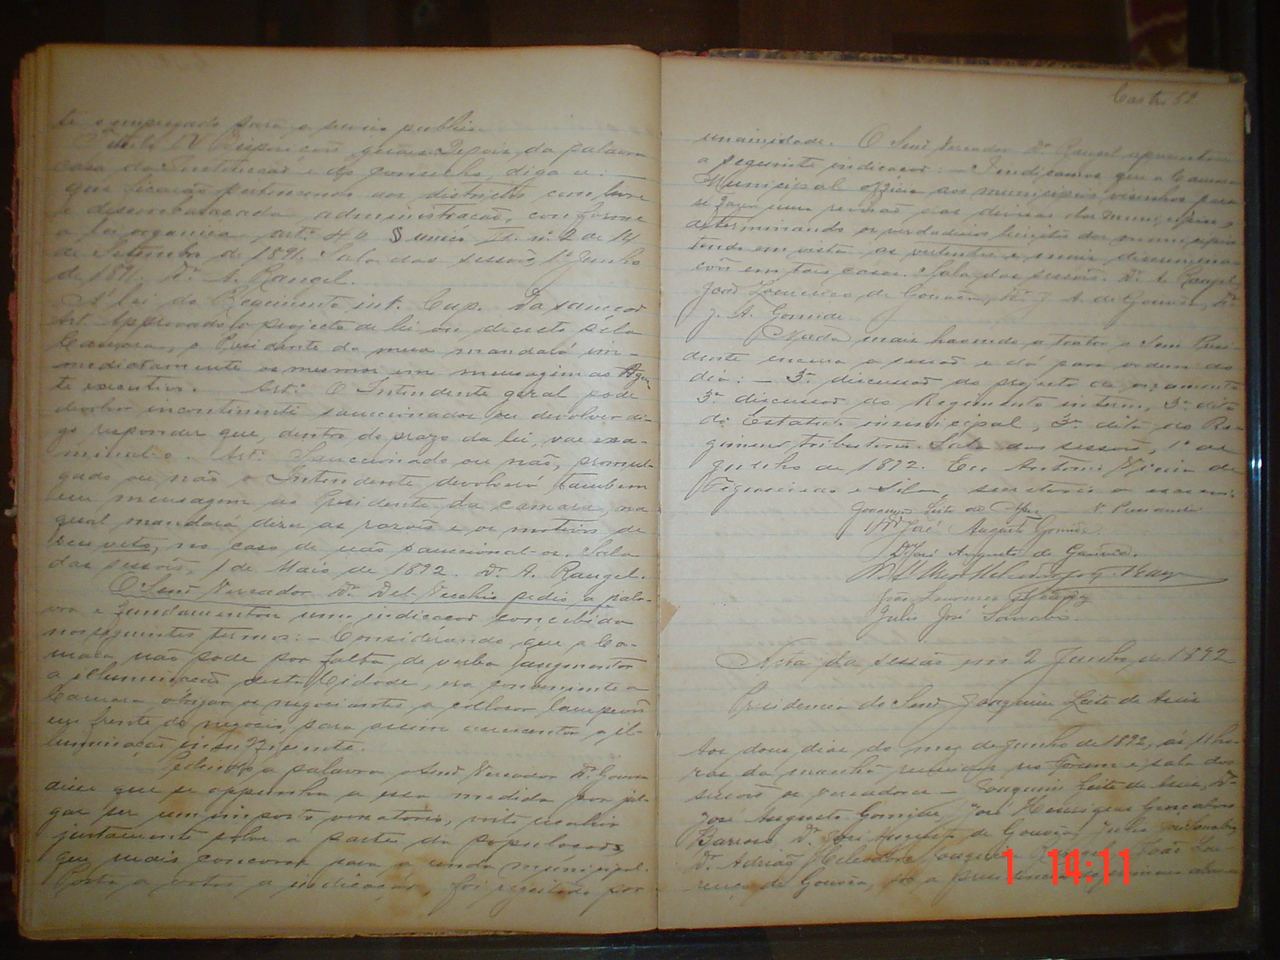 te empregado para o serviço publico
Titulo IV Disposições geraes Depois da palavra
casa da Instrucção e do Conselho, diga-se:
que ficarão pertencendo aos districtos com livre
e desembaraçada administração, conforme
a lei organica, art. 40 § unico n. 2 de 14
de Setembro de 1891. Sala das sessões, 1º Junho
de 189 Dr A. Rangel.
Á lei do Regimento int. Cap. Da sancção
Art. Approvado o projecto de lei ou decreto pela
Camara, o Presidente da mesa mandará im-
mediatamente os mesmos em mensagem ao Agen-
te executivo. Art. O Intendente geral pode
devolver incontinente sanccionados ou devolver di-
go responder que, dentro do prazo da lei, vae exa-
minal-o. Art. Sanccionado ou não, promul-
gado ou não o Intendente devolverá tambem
em mensagem ao Presidente da Camara, na
qual mandará dizer as razões e os motivos de
seu veto, no caso de não sanccional-os. Sala
das sessões, 1 de Maio de 1892. Dr. A. Rangel.
O Senr Vereador Dr Del Vecchio pedio a pala-
vra e fundamentou uma indicação concebida
nos seguintes termos: – Considerando que a Ca-
mara não pode por falta de verba augmentar
a illuminação desta Cidade, era conveniente a
Camara obrigar os negociantes a collocar lampeões
em frente do negocio para assim augmentar a il-
luminação insufficiente.
Pedindo a palavra o Senr Vereador Dr. Gouvea
disse que se oppunha a essa medida por jul-
gar ser um imposto vexatorio, visto recahir
justamente sobre a parte da população
que mais concorre para a renda municipal.
Posta a votos a indicação, foi regeitada por
52
unanimidade. O Senr Vereador Dr. Rangel apresentou
a seguinte indicação: – Indicamos que a Camara
Municipal officie aos municipios visinhos para
se fazer uma revisão nas divisas dos municipios,
determinando os verdadeiros limites dos municipios
tendo em vista as vertentes e mais discrimina-
ções em taes casos. Sala das sessões. Dr. A. Rangel,
João Lourenço de Gouvêa, Dr. J. A. de Gouvêa, Dr
J. A. Gomide.
Nada mais havendo a tratar o Senr Presi-
dente encerra a sessão e dá para ordem do
dia: – 3ª discussão do projecto de orçamento
3ª discussão do Regimento interno, 3ª dita
do Estatuto municipal, 3ª dita do Re-
gimen tributario. Sala das sessões, 1º de
Junho de 1892. Eu Antonio
Figueiredo e Silva, secretario o escrevi.
Joaquim Leite de Assis Presidente
Dr José Augusto Gomide
Dr José Augusto de Gouvêa.
João Lourenço
Julio José
Acta da sessão em 2 Junho de 1892
Presidencia do Senr Joaquim Leite de Assis
Aos dous dias do mez de Junho de 1892, ás 11 ho-
ras da manhã reunidos no Forum e sala das
sessões os vereadores – Joaquim Leite de Assis, Dr
José Augusto Gomide, José Henriques Gonçalves
Barroso, Dr. José Augusto de Gouvêa, Julio José
Dr. Adrião João Lou-
renço de Gouvêa, sob a presidencia do primeiro
1 14:11